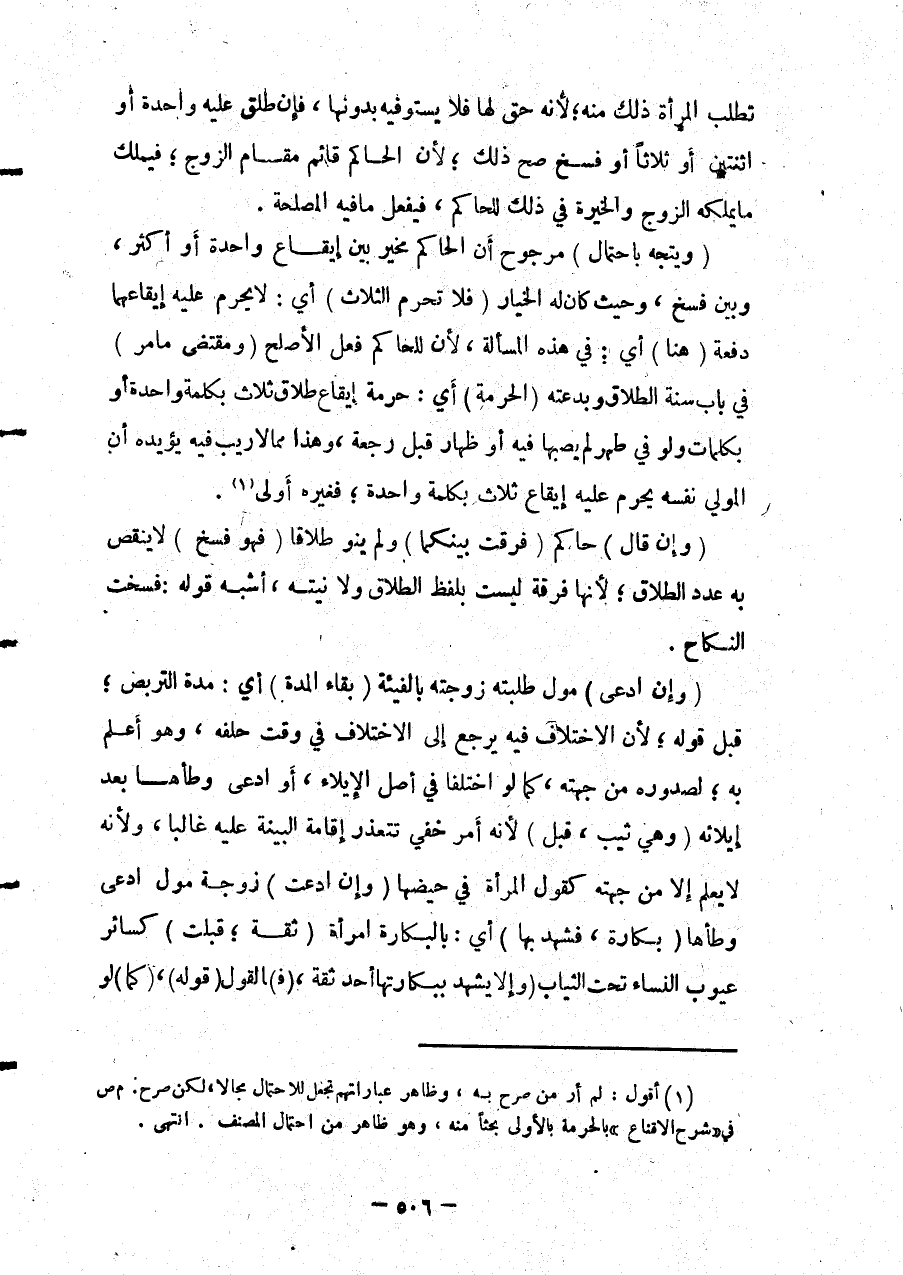 تطلب المرأة ذلك منه؛لأنه حق لها فلا يستوفيه بدونها ، فإن طلق عليه واحدة أو
اثنتين أو ثلاثاً أو فسخ صح ذلك ؛ لأن الحاكم قائم مقام الزوج ؛ فيملك
مايملكه الزوج والخيرة في ذلك للحاكم ، فيفعل مافيه المصلحة .
( ويتجه باحتمال ) مرجوح أن الحاكم مخير بين إيقاع واحدة أو أكثر ،
وبين فسخ ، وحيث كان له الخيار ( فلا تحرم الثلاث ) أي : لايحرم عليه إيقاعها
دفعة ( هنا ) أي : في هذه المسألة ، لأن للحاكم فعل الأصلح ( ومقتضى مامر )
في باب سنة الطلاق وبدعته ( الحرمة ) أي : حرمة إيقاع طلاق ثلاث بكلمة واحدة أو
بكلمات ولو في طهر لم يصبها فيه أو ظهار قبل رجعة ،وهذا ممالاريب فيه يؤيده أن
المولي نفسه يحرم عليه إيقاع ثلاث بكلمة واحدة ؛ فغيره أولى(١) .
( وإن قال ) حاكم ( فرقت بينكما ) ولم ينو طلاقا ( فهو فسخ ) لاينقص
به عدد الطلاق ؛ لأنها فرقة ليست بلفظ الطلاق ولا نيته ، أشبه قوله :فسخت
النكاح .
( وإن ادعى ) مول طلبته زوجته بالفيئة ( بقاء المدة ) أي : مدة التربص ؛
قبل قوله ؛ لأن الاختلاف فيه يرجع إلى الاختلاف في وقت حلفه ، وهو أعلم
به ؛ لصدوره من جهته ،كما لو اختلفا في أصل الإيلاء ، أو ادعى وطأها بعد
إيلائه ( وهي ثيب ، قبل ) لأنه أمر خفي تتعذر إقامة البينة عليه غالبا ، ولأنه
لايعلم إلا من جهته كقول المرأة في حيضها ( وإن ادعت ) زوجة مول ادعى
وطأها ( بكارة ، فشهد بها ) أي : بالبكارة امرأة ( ثقة ؛ قبلت ) كسائر
عيوب النساء تحت الثياب (وإلا يشهد ببكارتها أحد ثقة ،(ف)القول( قوله)،(كما)لو
(١) أقول : لم أر من صرح به ، وظاهر عباراتهم تجعل للاحتمال مجالا،لكن صرح م ص
في«شرح الاقناع »بالحرمة بالأولى بحثاً منه ، وهو ظاهر من احتمال المصنف . انتهى .
– ٥٠٦ –